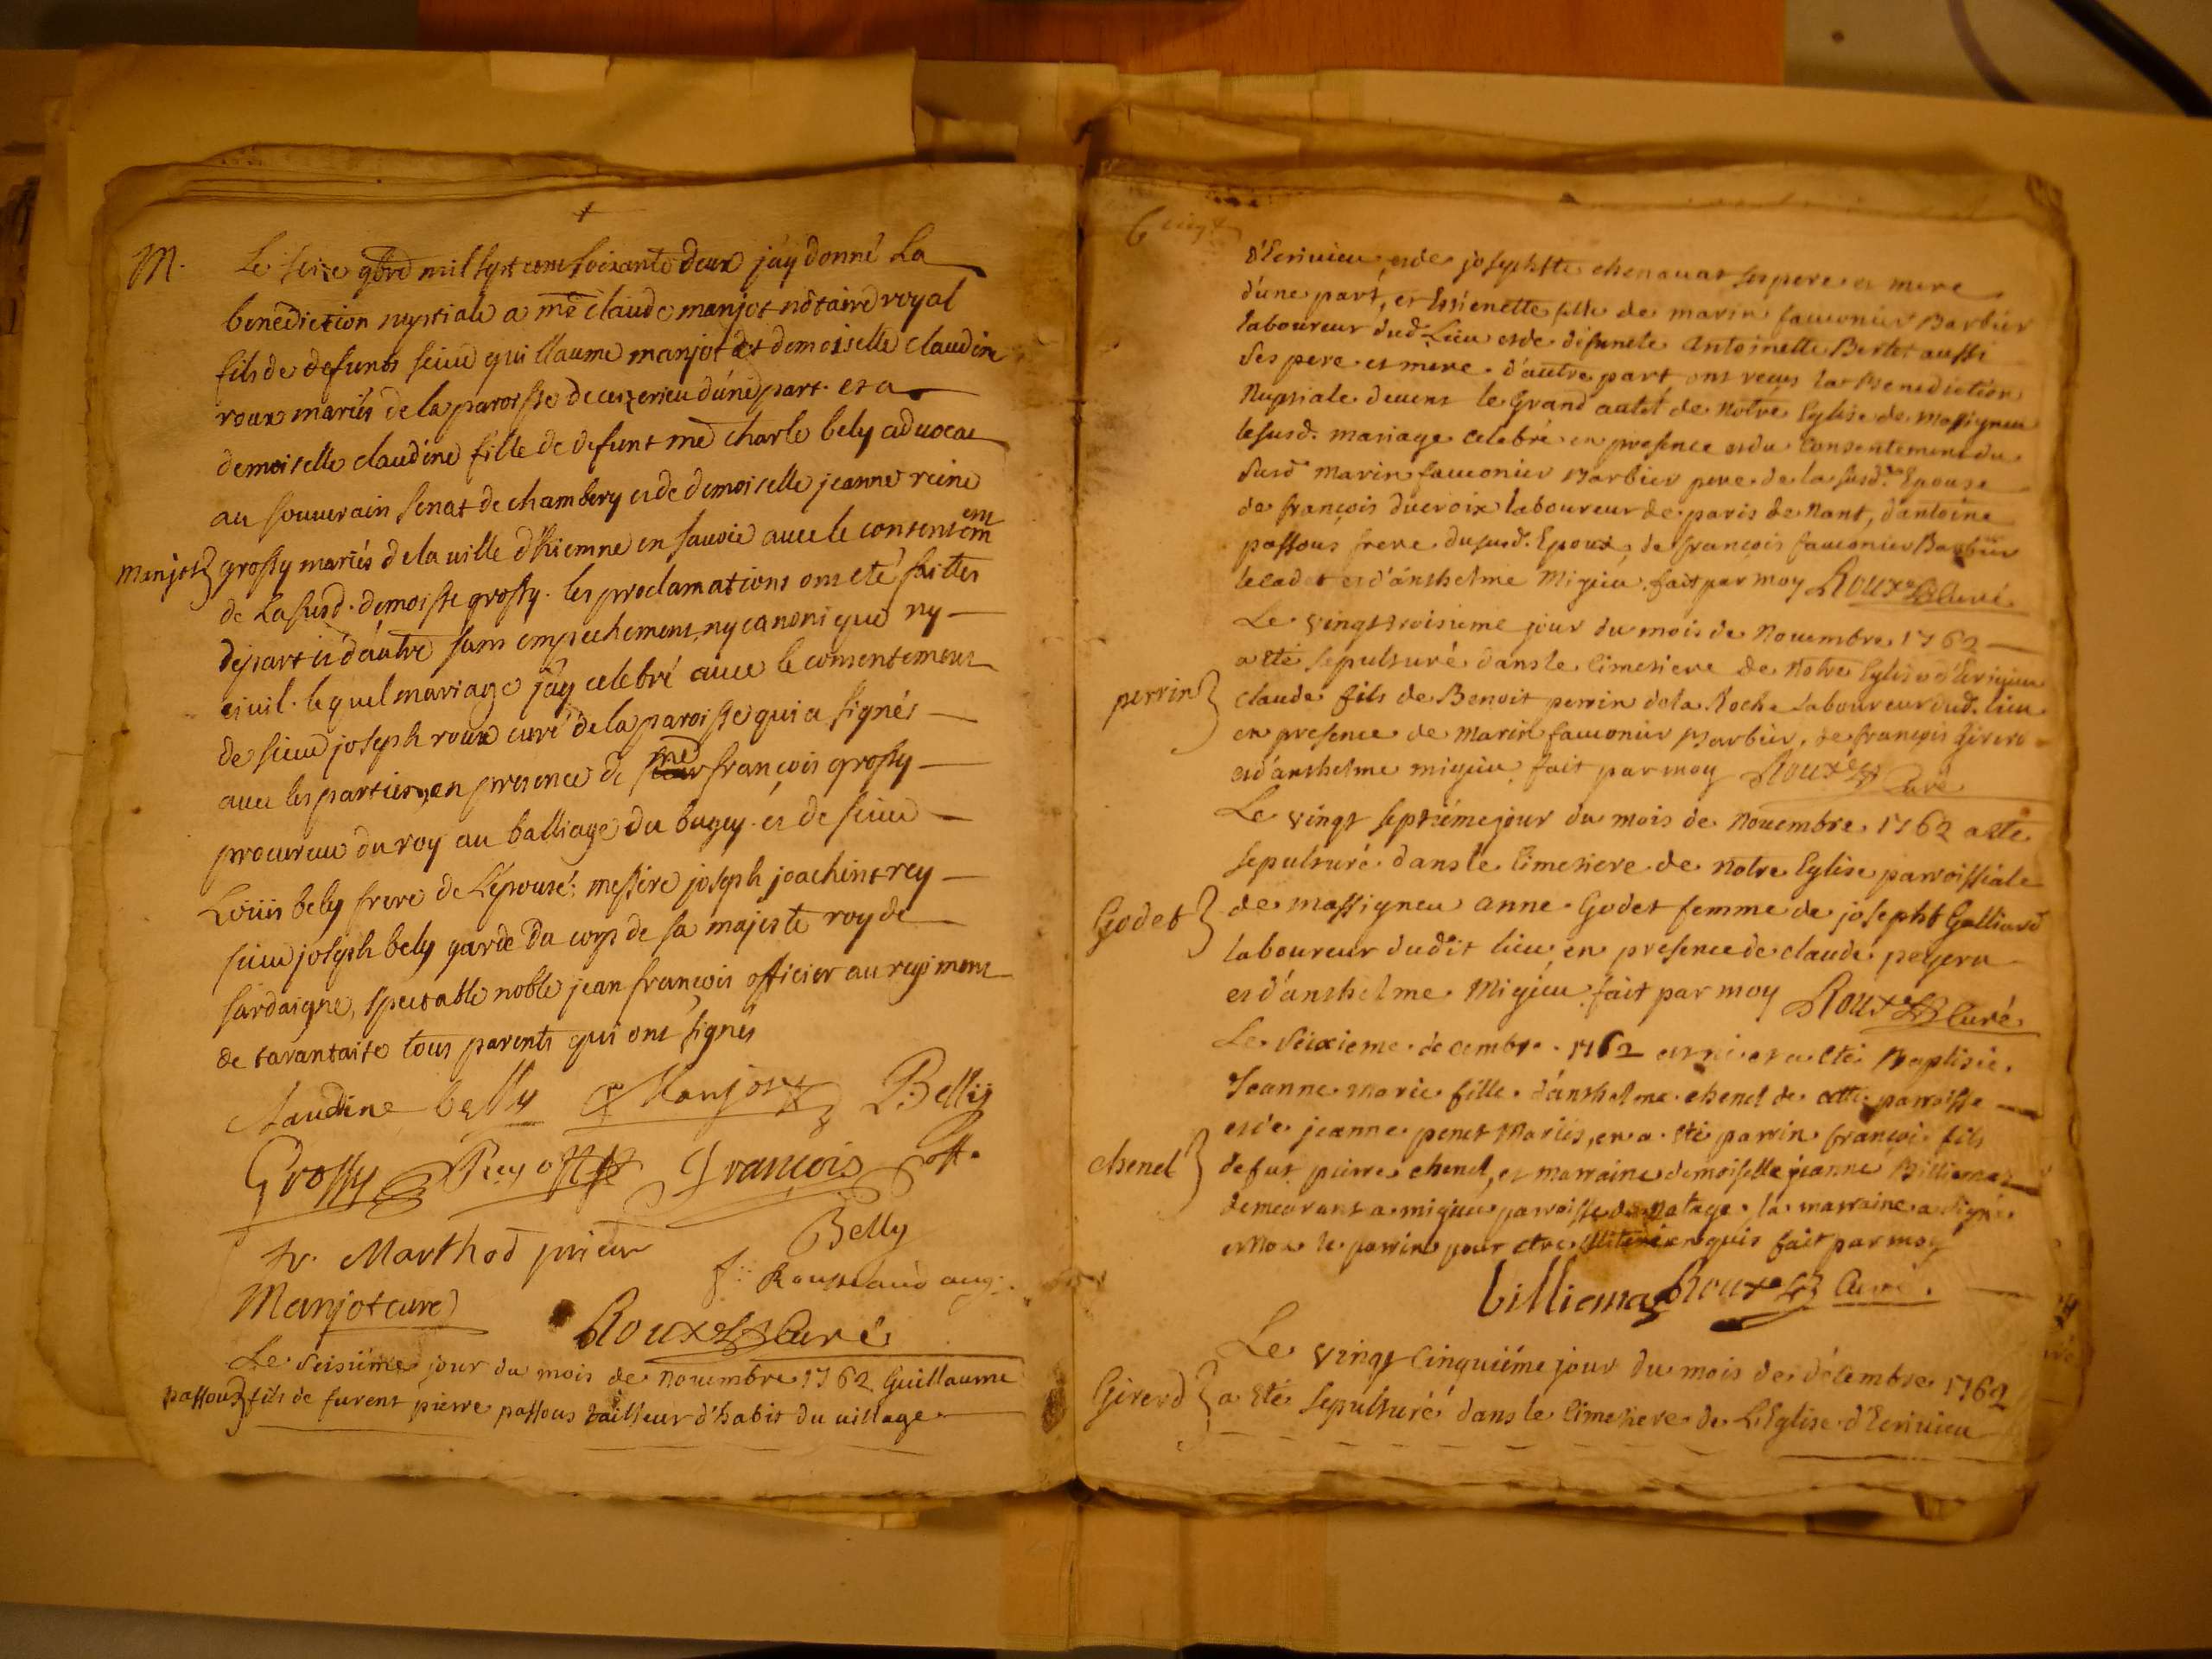 M.
Le seize 9bre mil sept cent soixante deux j'ay donné La
benediction nuptiale a me claude manjot nôtaire royal
fils de defunts sieur guillaume manjot et demoiselle claudine
roux mariés de la paroisse de ceizerieu d'une part. et a
demoiselle claudine fille de defunt me charle bely advocat
au souverain senat de chambery et de demoiselle jeanne reine
manjot grossy mariés de la ville d'hiemne en savoie avec le consentement
de La susd. demoislle grossy. les proclamations ont eté faittes
de part et d'autre sans empechement, ny canonique ny
civil. lequel mariage j'ay celebré avec le consentement
de sieur joseph roux curé de la paroisse qui a signés
avec les parties, en presence de me françois grossy
procureur du roy au balliage du bugey. et de sieur
Loüis bely frere de L'épouse: messire joseph joachint rey
sieur joseph bely garde du corps de sa majeste roy de
sardaigne, spectable noble jean françois officier au regiment
de tarantaise tous parents qui ont signés
Claudine belly Manjot Belly
Grossy Rey François
Belly
fr. Marthod prieur
f. Rousseaud aug.
Manjot curé
Roux Curé
Le seisiéme jour du mois de novembre 1762 Guillaume
passous fils de furent pierre passous tailleur d'habit du village
d'Ecrivieu, et de josephte chenavat ses pere et mere
d'une part, et Estienette fille de marin fauconier Barbier
laboureur dud. Lieu et de defuncte Antoinette Bertet aussi
ses pere et mere. d'autre part ont reçus la Benediction
Nuptiale devent le Grand autel de Notre Eglise de Massigneu
lesusd. mariage celebré en presence et du Consentement du
susd marin fauconier Barbier pere de la susd.e Epouse
de françois ducroix laboureur de paris de Nant, d'antoine
passous frere du susd. Epoux, de françois fauconier Barbier
le cadet et d'anthelme Migieu. fait par moy Roux Curé
Le vingt troisieme jour du mois de Novembre 1762
a eté sepulturé dans le cimetiere de Notre Eglise d'Ecrivieu
perrin claude fils de Benoit perrin de la Roche laboureur dud. lieu
en presence de Marin fauconier Barbier, de françois Girerd
et d'anthelme migieu fait par moy Roux Curé
Le vingt septiéme jour du mois de Novembre 1762 a eté
sepulturé dans le cimetiere de notre Eglise parroissiale
Godet de massigneu anne Godet femme de josepht Galliard
laboureur dudit lieu, en presence de claude peyera
et d'anthelme Migieu fait par moy Roux Curé
Le seixieme decembre 1762 est né et a eté Baptisée
Jeanne Marie fille d'anthelme chenel de cette parroisse
et de jeanne penet Mariés, en a eté parrin françoi fils
chenel de fut pierre chenel, et marraine demoiselle jeanne Billiemaz
demeurant a migieu parroisse de Natage. la marraine a signé
et Non le parrin pour etre illiteré enquis fait par moy
billiemaz Roux Curé
Le vingt Cinquiéme jour du mois de décembre 1762
Girerd a eté sepulturé dans le cimetiere de L'Eglise d'Ecrivieu